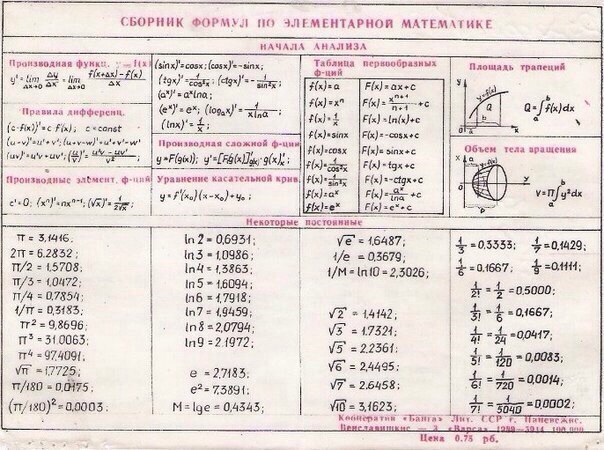 СБОРНИК ФОРМУЛ ПО ЭЛЕМЕНТАРНОЙ МАТЕМАТИКЕ
НАЧАЛА АНАЛИЗА
Производная функц. y=f(x)
y'=lim Δy/Δx = lim (f(x+Δx)-f(x))/Δx
Δx→0 Δx→0
Правила дифференц.
(c·f(x))'=c f'(x); c=const
(u-v)'=u'+v'; (u+v-w)'=u'+v'-w'
(uv)'=u'v+uv'; (u/v)'=(u'v-uv')/v²
Производные элемент. ф-ций
c'=0; (xⁿ)'=nxⁿ⁻¹; (√x)'=1/(2√x);
(sinx)'=cosx; (cosx)'=-sinx;
(tgx)'=1/cos²x; (ctgx)'=-1/sin²x;
(aˣ)'=aˣlna;
(eˣ)'=eˣ; (logₐx)'=1/(xlna);
(lnx)'=1/x;
Производная сложной ф-ции
Уравнение касательной крив.
y=f'(x₀)(x-x₀)+y₀;
Таблица первообразных
ф-ций
f(x)=a F(x)=ax+c
f(x)=xⁿ F(x)=xⁿ⁺¹/(n+1)+c
f(x)=1/x F(x)=ln(x)+c
f(x)=sinx F(x)=-cosx+c
f(x)=cosx F(x)=sinx+c
f(x)=1/cos²x F(x)=tgx+c
f(x)=1/sin²x F(x)=-ctgx+c
f(x)=aˣ F(x)=aˣ/lna+c
f(x)=eˣ F(x)=eˣ+c
Площадь трапеций
y=f(x)
Q=∫ₐᵇf(x)dx
Объем тела вращения
V=Π∫ₐᵇy²dx
Некоторые постоянные
π = 3,1416;
2π = 6.2832;
π/2 = 1,5708;
π/3 = 1,0472;
π/4 = 0,7854;
1/π = 0,3183;
π² = 9,8696;
π³ = 31.0063;
π⁴ = 97.4091;
√π = 1,7725;
π/180 = 0,0175;
(π/180)² = 0,0003;
ln 2 = 0,6931;
ln 3 = 1,0986;
ln 4 = 1,3863;
ln 5 = 1,6094;
ln 6 = 1,7918;
ln 7 = 1,9459;
ln 8 = 2,0794;
ln 9 = 2.1972;
e = 2,7183;
e² = 7.3891;
M = lg e = 0,4343;
√e = 1,6487;
1/e = 0.3679;
1/M = ln10 = 2,3026;
√2 = 1.4142;
√3 = 1.7321;
√5 = 2,2361;
√6 = 2,4495;
√7 = 2.6458;
√10 = 3,1623;
1/3 = 0.3333; 1/7 = 0,1429;
1/6 = 0.1667; 1/9 = 0.1111;
1/2! = 1/2 = 0,5000;
1/3! = 1/6 = 0,1667;
1/4! = 1/24 = 0,0417;
1/5! = 1/120 = 0,0083;
1/6! = 1/720 = 0,0014;
1/7! = 1/5040 = 0,0002;
Кооператив «Банга» Лит. ССР г. Паневежис.
Цена 0.75 рб.